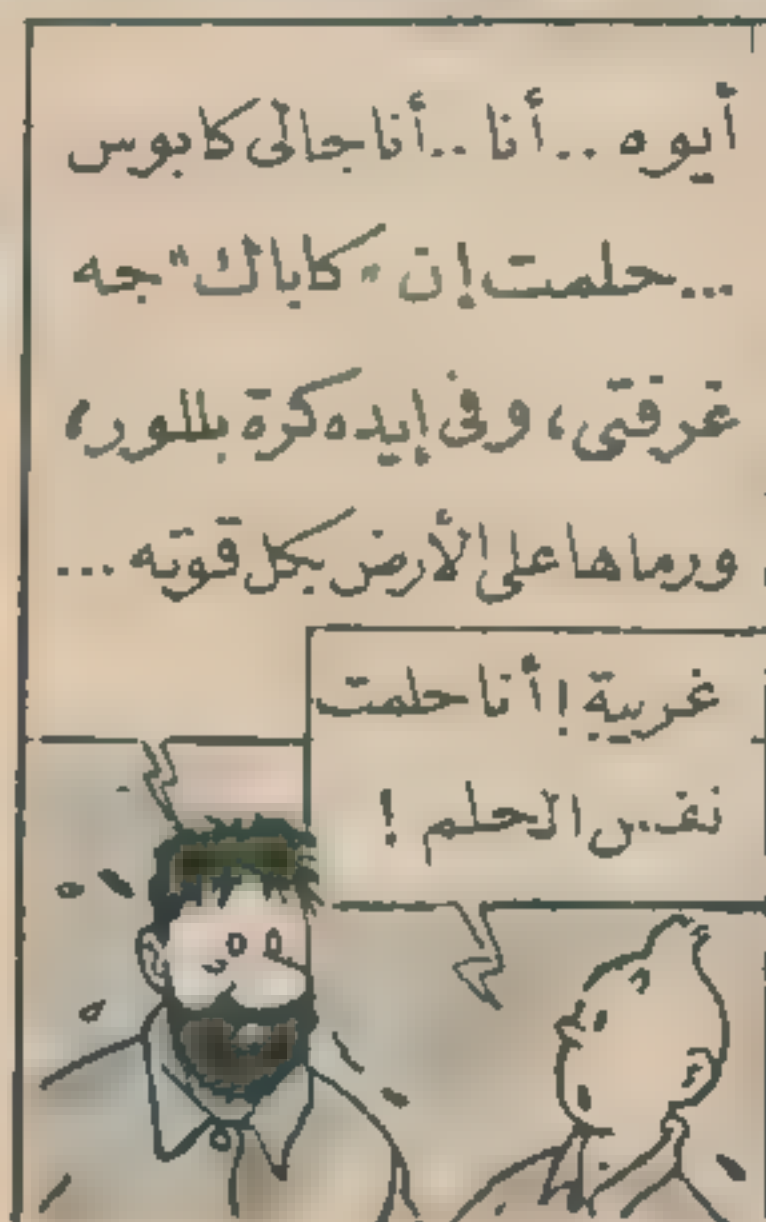 أيوه .. أنا .. أنا جالى كابوس
... حلمت إن "كاباك" جه
غرفتى، وفى إيده كرة بللور،
ورماها على الأرض بكل قوته ...
غريبة! أنا حلمت
نفس الحلم!